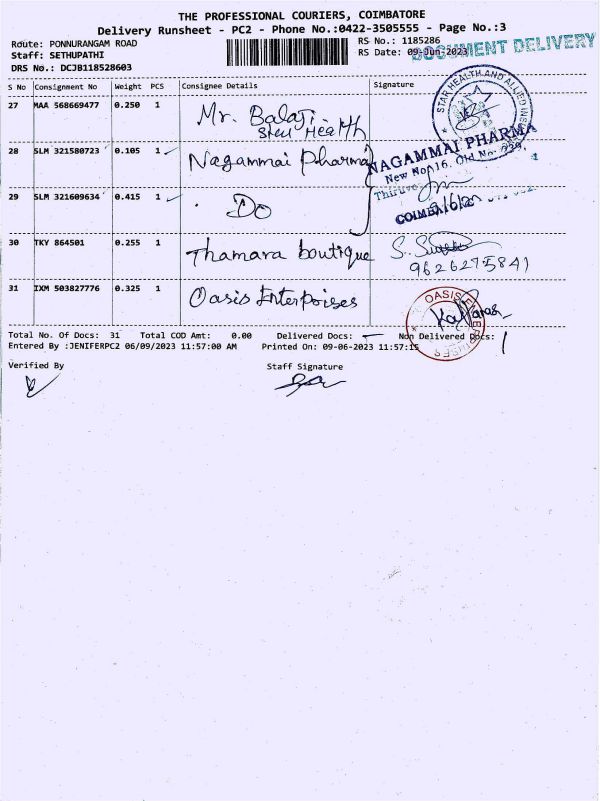 THE PROFESSIONAL COURIERS, COIMBATORE
Delivery Runsheet - PC2 - Phone No.:0422-3505555 - Page No.:3
Route: PONNURANGAM ROAD
Staff: SETHUPATHI
DRS No.: DCJB118528603
RS No.: 1185286
RS Date: 09-Jun-2023
DOCUMENT DELIVERY
S No Consignment No Weight PCS Consignee Details Signature
27 MAA 568669477 0.250 1 Mr. Balaji
Health
STAR HEALTH AND ALLIED INS
28 SLM 321580723 0.105 1 Nagammai Pharma
NAGAMMAI PHARMA
New No. 16, Old No. 729,
29 SLM 321609634 0.415 1 Do
30 TKY 864501 0.255 1 Thamara boutique
9626275841
31 IXM 503827776 0.325 1 Oasis Enterpoises
OASIS
Total No. Of Docs: 31 Total COD Amt: 0.00 Delivered Docs: Non Delivered Docs:
Entered By :JENIFERPC2 06/09/2023 11:57:00 AM Printed On: 09-06-2023 11:57:15
Verified By Staff Signature